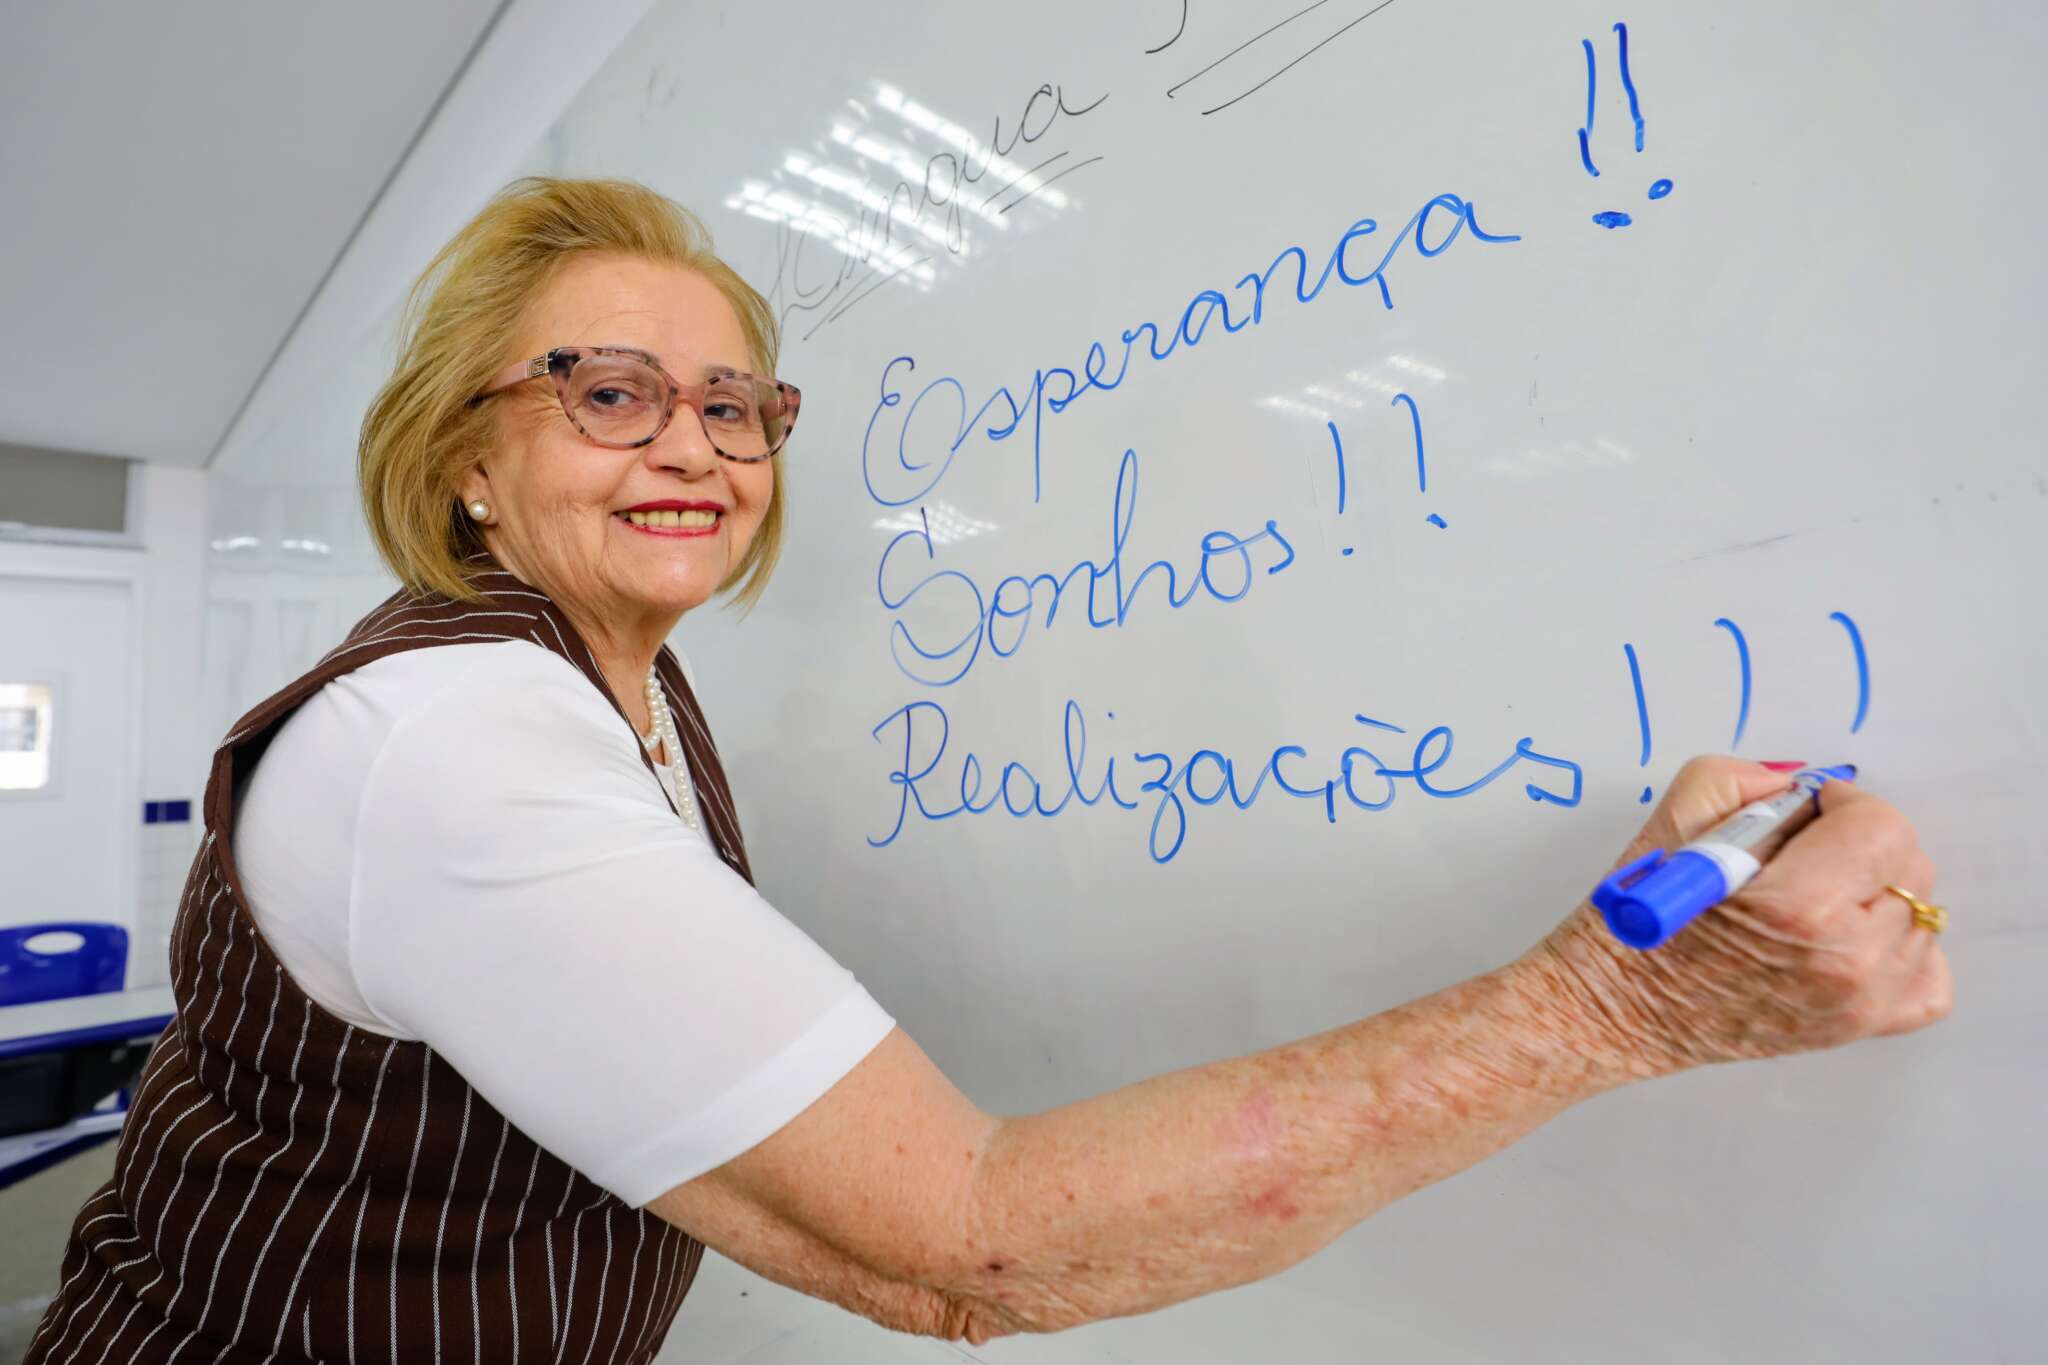 Língua
Esperança!!
Sonhos!!
Realizações!))